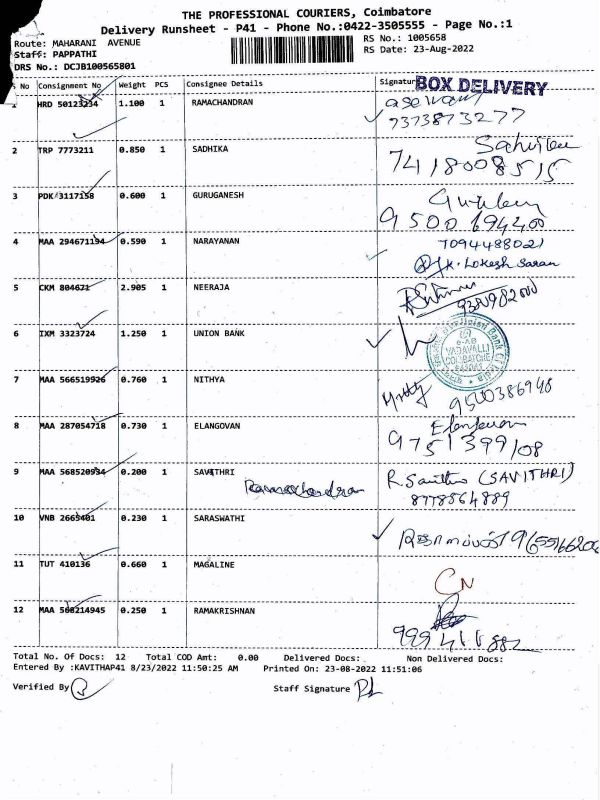 THE PROFESSIONAL COURIERS, Coimbatore
Delivery Runsheet - P41 - Phone No.:0422-3505555 - Page No.:1
Route: MAHARANI AVENUE
RS No.: 1005658
Staff: PAPPATHI
RS Date: 23-Aug-2022
DRS No.: DCJB100565801
No Consignment No Weight PCS Consignee Details Signature BOX DELIVERY
1 HRD 50123234 1.100 1 RAMACHANDRAN
7373873277
2 TRP 7773211 0.850 1 SADHIKA
7418008515
3 PDK 3117158 0.600 1 GURUGANESH
4 MAA 294671194 0.590 1 NARAYANAN 7094488021
K. Lokesh Saran
5 CKM 804671 2.905 1 NEERAJA
6 IXM 3323724 1.250 1 UNION BANK
VADAVALLI
COIMBATORE
7 MAA 566519926 0.760 1 NITHYA
9500386948
8 MAA 287054718 0.730 1 ELANGOVAN
9751399108
9 MAA 568520934 0.200 1 SAVITHRI R. Savithri (SAVITHRI)
Ramachandran 8778564889
10 VNB 2665401 0.230 1 SARASWATHI
11 TUT 410136 0.660 1 MAGALINE
CN
12 MAA 568214945 0.250 1 RAMAKRISHNAN
Total No. Of Docs: 12 Total COD Amt: 0.00 Delivered Docs: Non Delivered Docs:
Entered By :KAVITHAP41 8/23/2022 11:50:25 AM Printed On: 23-08-2022 11:51:06
Verified By Staff Signature